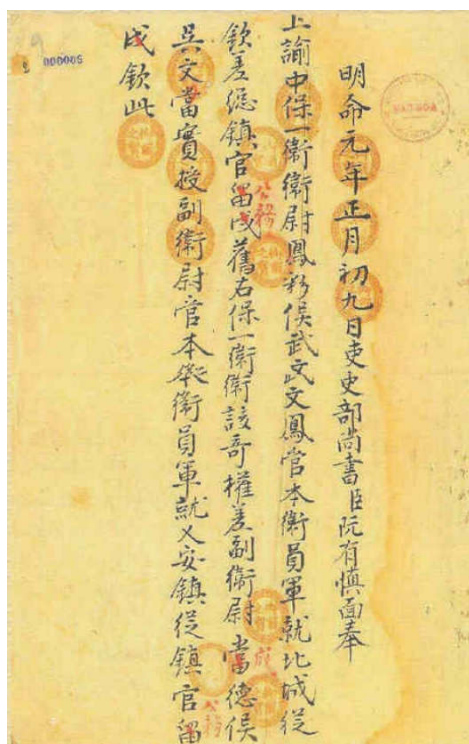 明命元年正月初九日吏史部尚書臣阮有慎面奉
上諭中保一衛衛尉鳳彩侯武武文鳳官本衛員軍就北城從
欽差總鎮官留戍舊右保一衛衛該奇權差副衛尉當德侯
吳文當實授副衛尉官本衛衛員軍就乂安鎮從鎮官留
戍欽此
公務
公務
000005